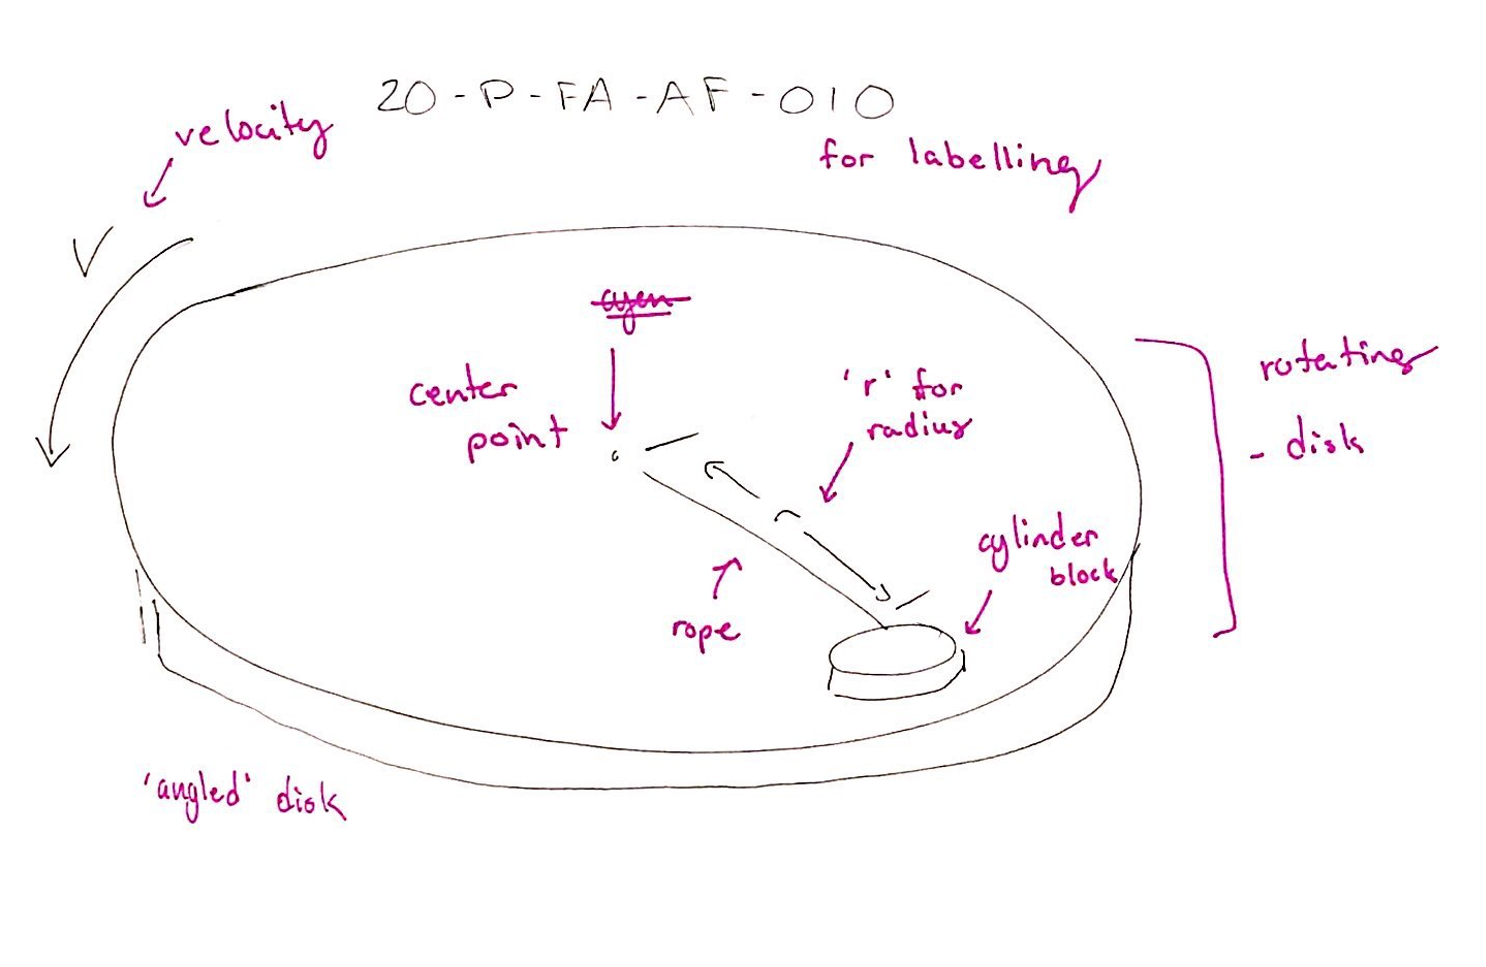 20-P-FA-AF-010
velocity
for labelling
V
center
point
'r' for
radius
rotating
- disk
r
cylinder
block
rope
'angled' disk